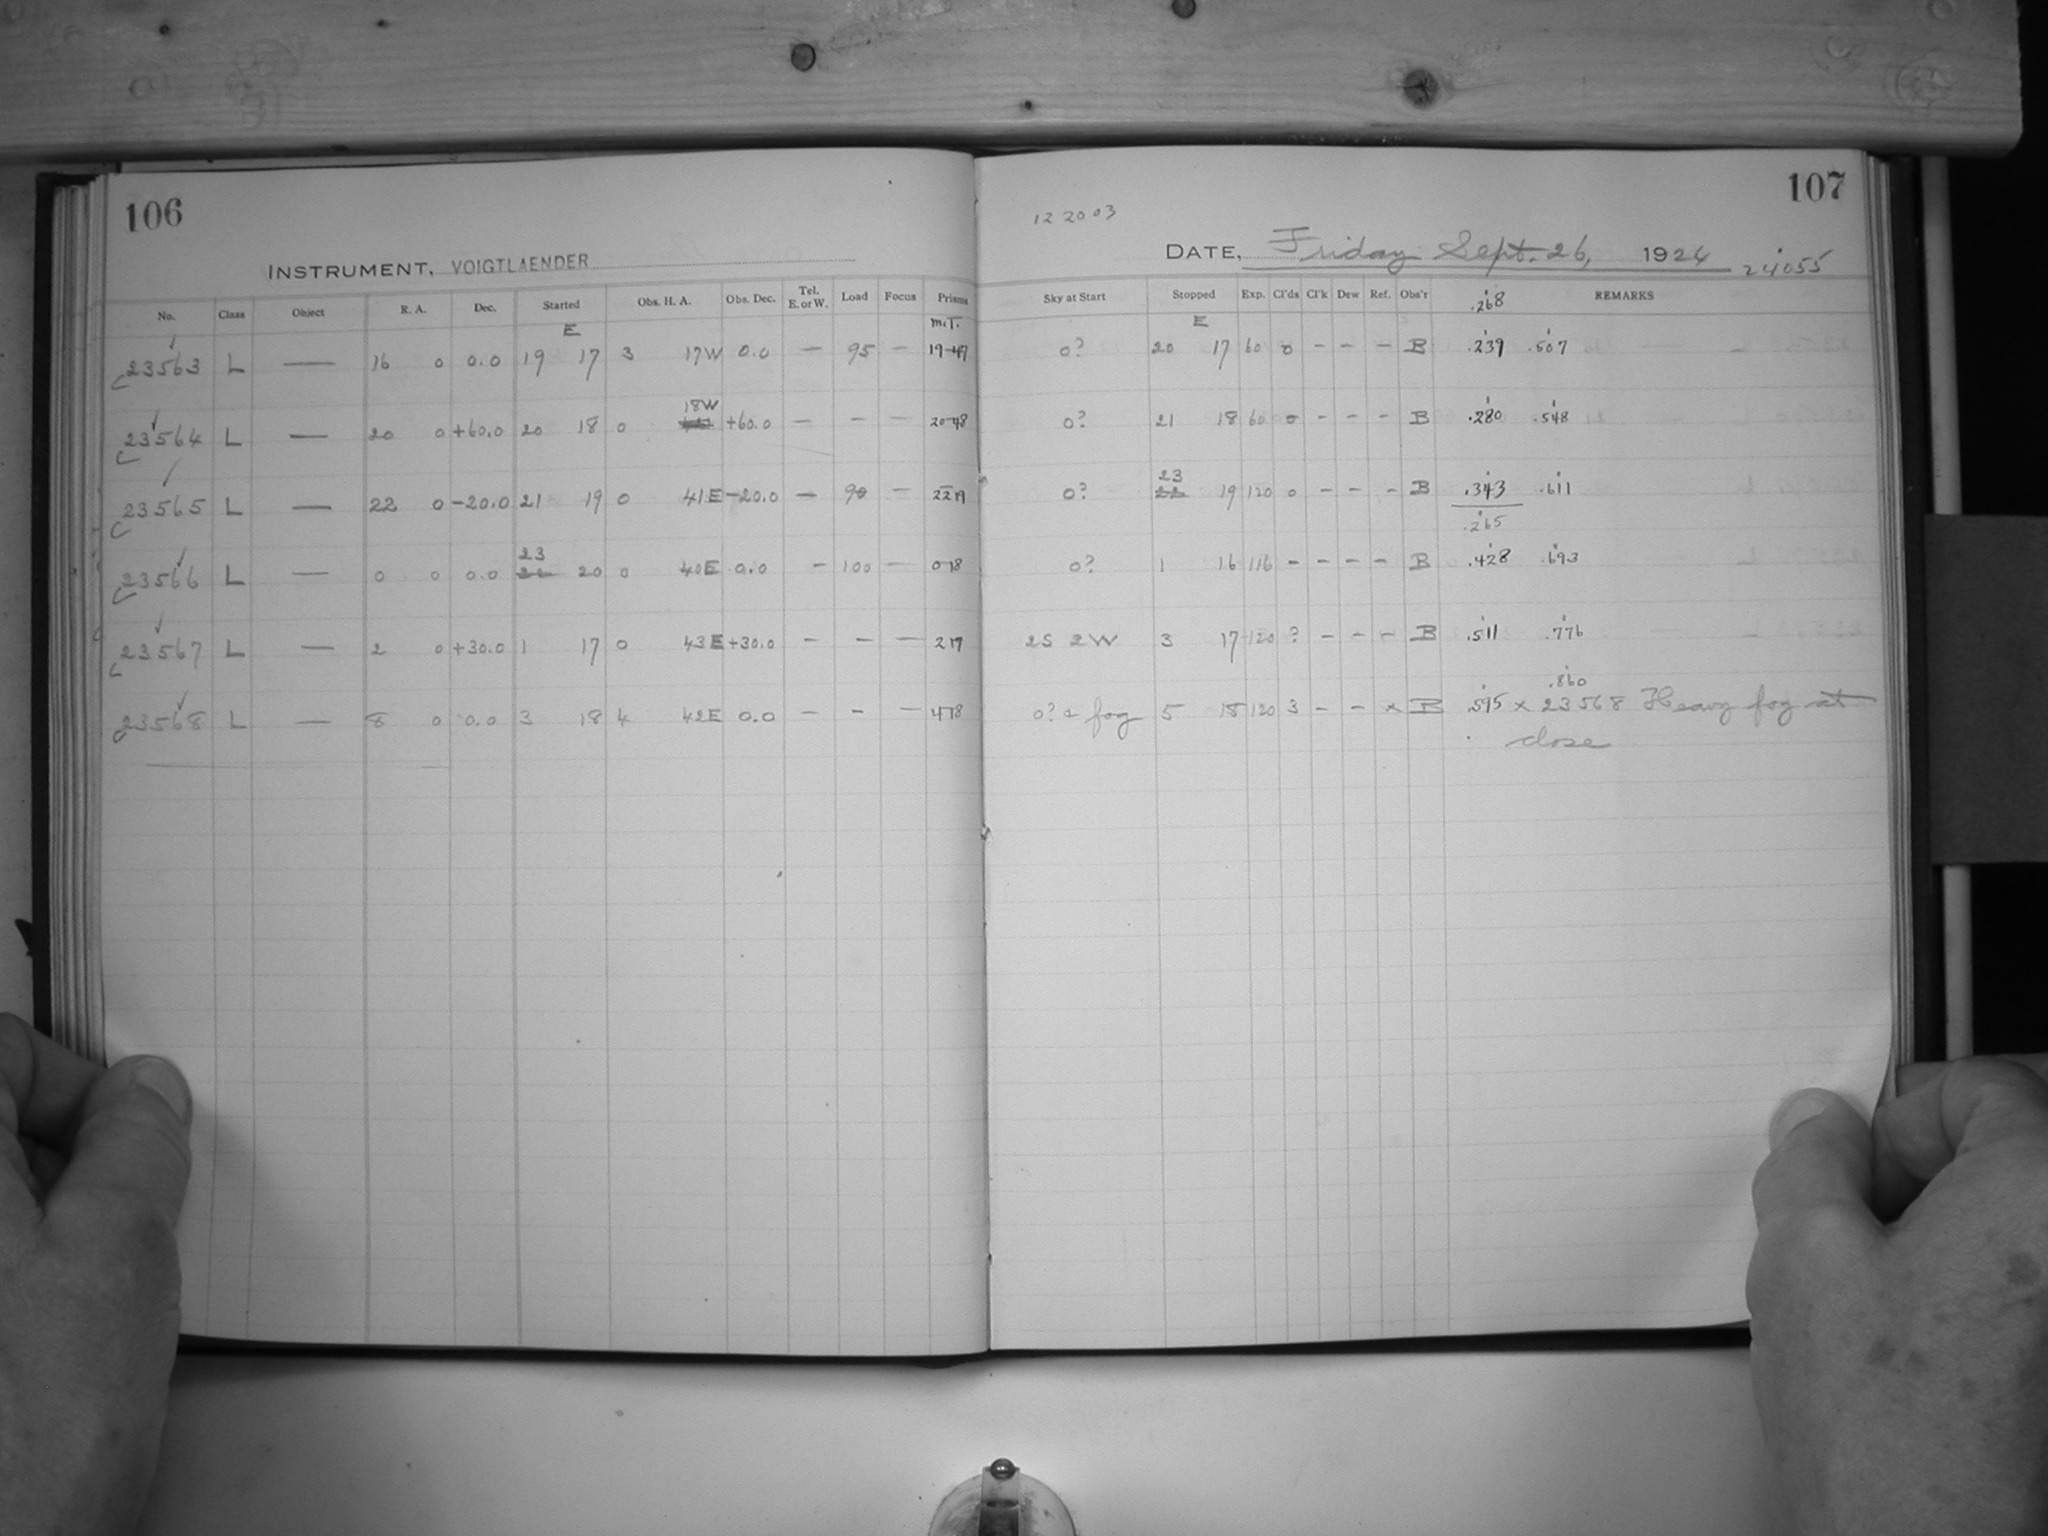 106
INSTRUMENT, VOIGTLAENDER
No. Class Object R. A. Dec. Started Obs. H. A. Obs. Dec. Tel. E. or W. Load Focus Prisms
E m.T.
23563 L — 16 0 0.0 19 17 3 17W 0.0 — 95 — 19-47
18W
23564 L — 20 0 +60.0 20 18 0 +60.0 — — — 20-48
23565 L — 22 0 -20.0 21 19 0 41E -20.0 — 90 — 22 19
23
23566 L — 0 0 0.0 22 20 0 40E 0.0 — 100 — 0 18
23567 L — 2 0 +30.0 1 17 0 43E +30.0 — — — 2 17
23568 L — 8 0 0.0 3 18 4 42E 0.0 — — — 4 18
107
12 20 03
DATE, Friday Sept. 26, 1924 24055
Sky at Start Stopped Exp. Cl'ds Cl'k Dew Ref. Obs'r .268 REMARKS
E
0? 20 17 60 0 - - - B .239 .507
0? 21 18 60 0 - - - B .280 .548
23
0? 22 19 120 0 - - - B .343 .611
.265
0? 1 16 116 - - - - B .428 .693
2S 2W 3 17 120 ? - - - B .511 .776
.860
0? & fog 5 18 120 3 - - x B .595 x 23568 Heavy fog at
close